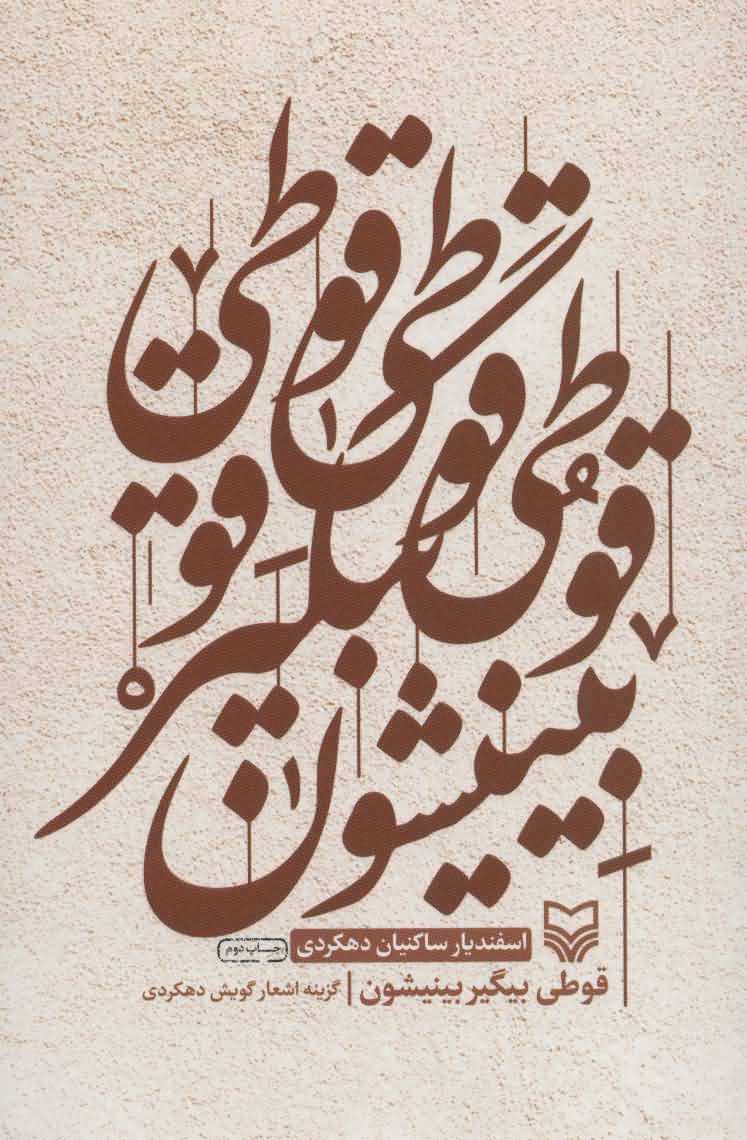 قوطی قوطی
قوطی قوطی
بیگیر
بینیشون
اسفندیار ساکنیان دهکردی
چاپ دوم
قوطی بیگیر بینیشون | گزینه اشعار گویش دهکردی